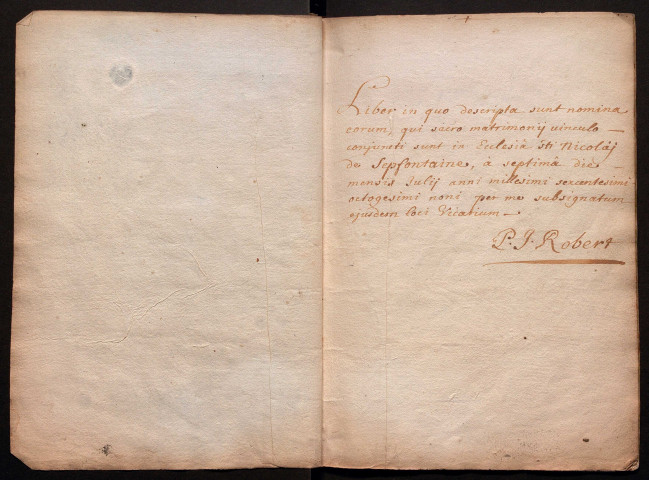 Liber in quo descripta sunt nomina
eorum, qui sacro matrimonij vinculo
conjuncti sunt in Ecclesiâ Sti Nicolaj
de Sepfontaine, à septimâ die
mensis Julij anni millesimi sexcentesimi
octogesimi noni per me subsignatum
ejusdem loci Vicarium.
P. J. Robert